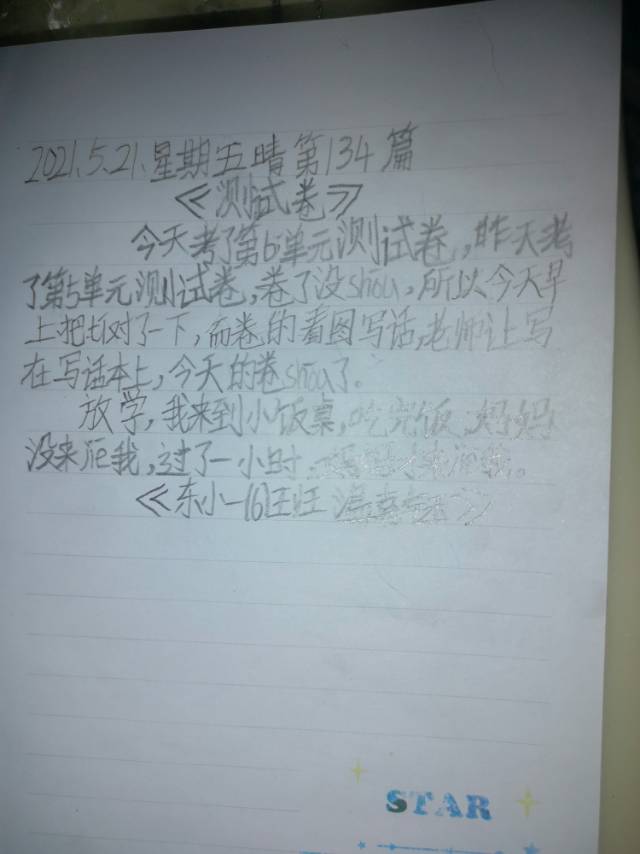 2021.5.21.星期五晴第134篇
《测试卷》
今天考了第6单元测试卷，昨天考
了第5单元测试卷，卷了没shōu，所以今天早
上把切对了一下，而卷的看图写话，老师让写
在写话本上，今天的卷shōu了。
放学，我来到小饭桌，吃完饭，妈妈
没来，我，过了一小时，
《东小一(6)
STAR